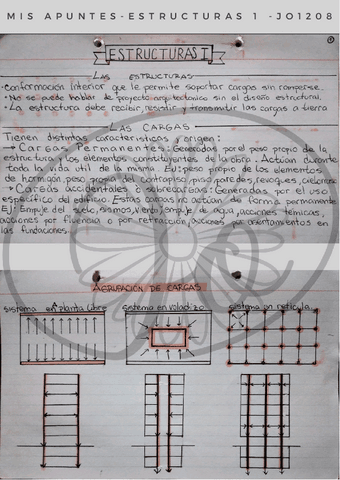 MIS APUNTES-ESTRUCTURAS 1 -JO1208
ESTRUCTURAS I
LAS ESTRUCTURAS
·Conformación interior que le permite soportar cargas sin romperse.
·No se puede hablar de proyecto arquitectónico sin el diseño estructural.
·La estructura debe recibir, resistir y transmitir las cargas a tierra
LAS CARGAS
Tienen distintas características y origen:
→ Cargas Permanentes: Generadas por el peso propio de la
estructura y los elementos constituyentes de la obra. Actúan durante
toda la vida útil de la misma. EJ: peso propio de los elementos
de hormigón, peso propio del contrapiso, piso, paredes, revoques,
→ Cargas accidentales o sobrecargas: Generadas por el uso
específico del edificio. Estas cargas no actúan de forma permanente
EJ: Empuje del suelo, sismos, viento, empuje de agua, acciones térmicas,
acciones por fluencia o por retracción, acciones por asentamientos en
las fundaciones.
AGRUPACIÓN DE CARGAS
sistema en planta libre
sistema en voladizo
sistema en retícula